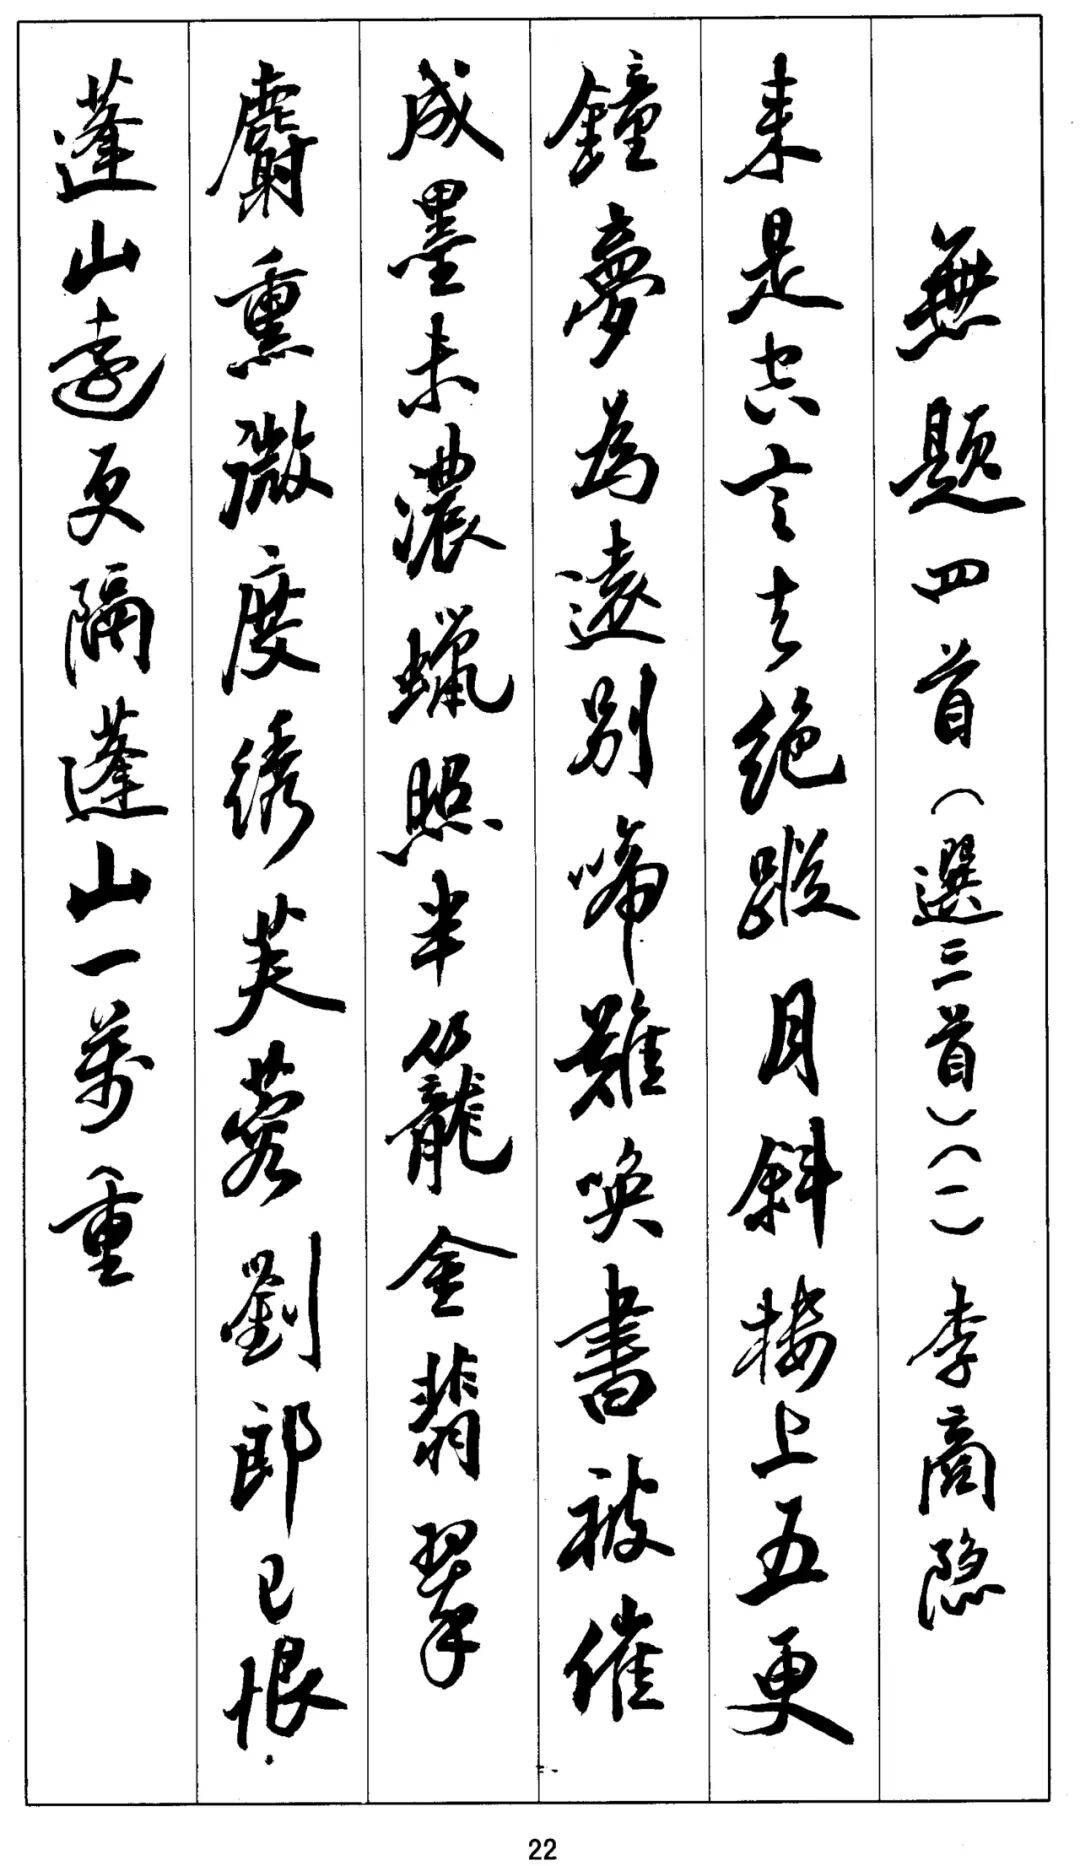 無題四首（選三首）（一）李商隐
来是空言去绝蹤月斜楼上五更
鐘夢为遠别啼難唤書被催
成墨未濃蠟照半籠金翡翠
麝熏微度绣芙蓉劉郎已恨
蓬山遠更隔蓬山一萬重
22